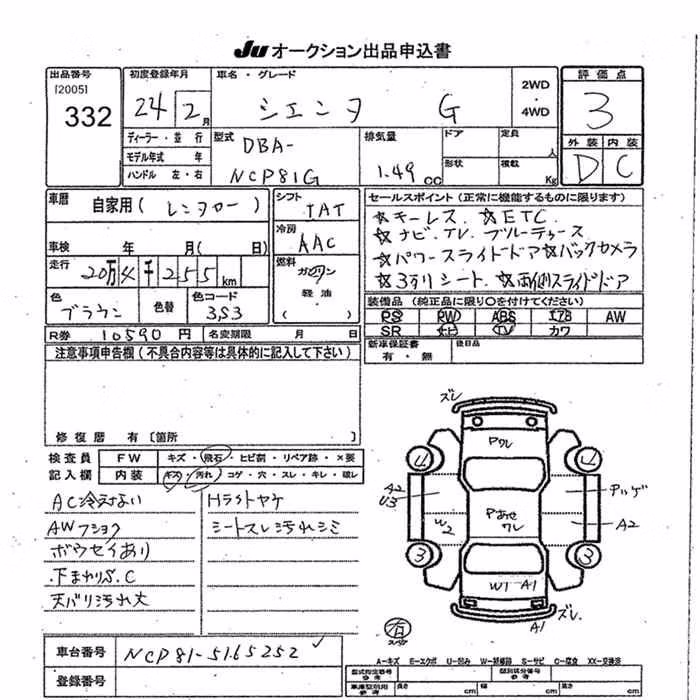 JU オークション出品申込書
出品番号
[2005]
332
初度登録年月
24 2月
車名・グレード
シエンタ G
2WD
・
4WD
評価点
3
外装 内装
D C
ディーラー・並行
モデル年式 年
ハンドル 左・右
型式
DBA-
NCP81G
排気量
1.49 cc
ドア
定員
人
形状
積載
Kg
車歴
自家用( レンタカー )
シフト
IAT
車検 年 月( 日)
冷房
AAC
走行
20万4千255km
燃料
ガソリン
軽油
( )
色
ブラウン
色替
色コード
3S3
R券 10590円
名変期限 月 日
セールスポイント(正常に機能するものに限ります)
☆キーレス. ☆ETC.
☆ナビ.TV. ブルーテゥース
☆パワースライドドア☆バックカメラ
☆3列シート. ☆両側スライドドア
装備品(純正品に限り○を付けてください)
PS PW ABS エアB AW
SR ナビ TV カワ
新車保証書
有・無
後日品
注意事項申告欄(不具合内容等は具体的に記入して下さい)
修復歴 有 〔箇所 〕
検査員
記入欄
FW キズ・飛石・ヒビ割・リペア跡・×要
内装 キズ・汚れ・コゲ・穴・スレ・キレ・破レ
AC冷えない
AWフショク
ボウセイあり
下まわりS.C
天バリ汚れ大
Hライトヤケ
シートスレ汚れシミ
ズレ
Pワレ
A2
U3
W2
Pあせ
ワレ
Pハゲ
A2
3
3
W1-A1
ズレ
A1
有
A-キズ E-エクボ U-凹み W-補修跡 S-サビ C-腐食 XX-交換済
車台番号 NCP81-5165252
登録番号
型式指定番号
参考
類別区分番号
参考
車庫証明用
参考
長さ cm
幅 cm
高さ cm